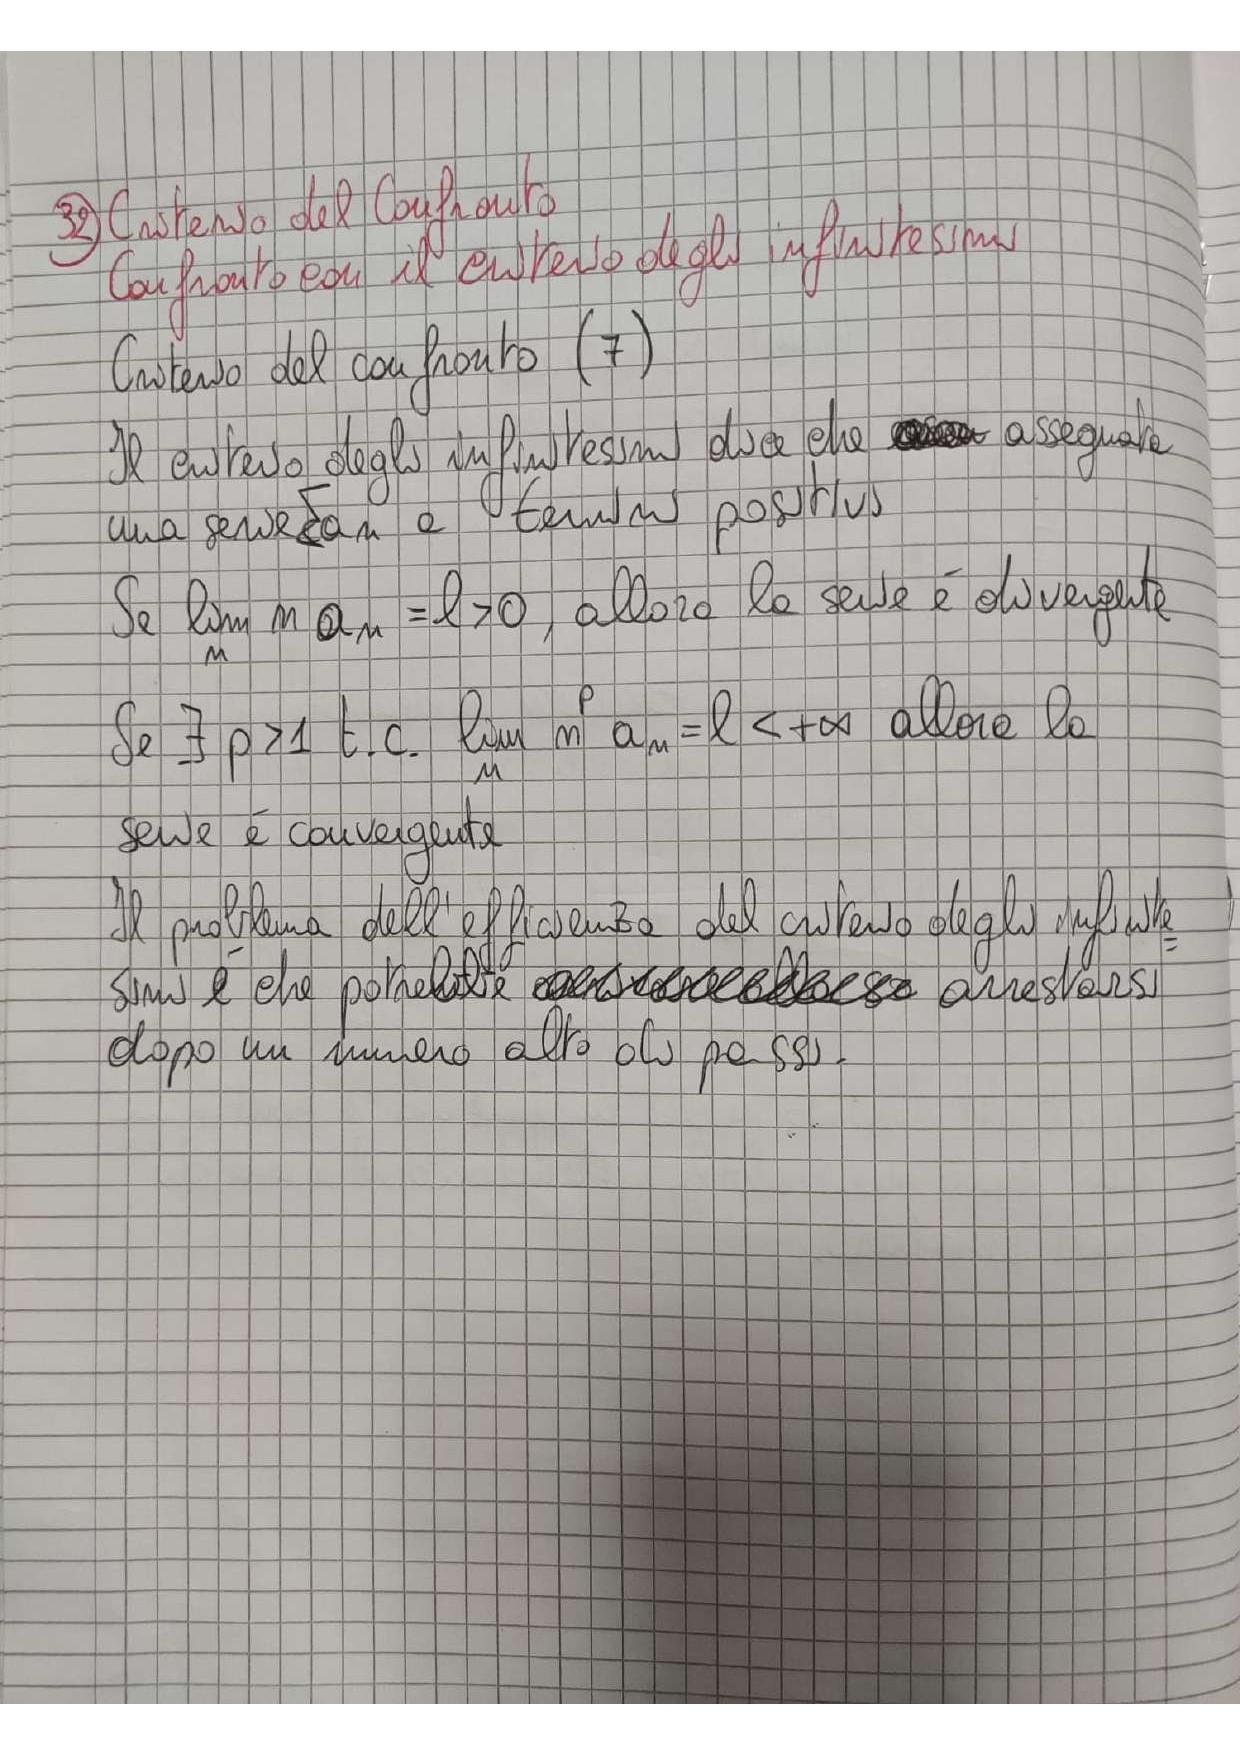 32) Criterio del Confronto
Confronto con il criterio degli infinitesimi
Criterio del confronto (7)
Il criterio degli infinitesimi dice che assegnata
una serie Σan a termini positivi
Se lim n an = l > 0, allora la serie è divergente
n
Se ∃ p > 1 t.c. lim n^p an = l < +∞ allora la
n
serie è convergente
Il problema dell'efficienza del criterio degli infinite=
simi è che potrebbe arrestarsi
dopo un numero alto di passi.